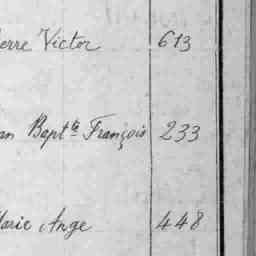 erre Victor 613
an Bapt.te François 233
Marie Ange 448